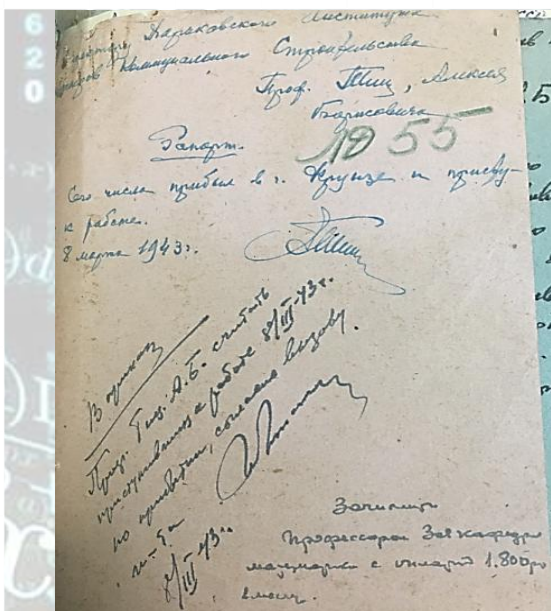 6
2
0
Харьковского Института
Коммунального Строительства
Проф. Тиц, Алексея
Борисовича
1955
Рапорт.
Сего числа прибыл в г. Фрунзе и присту-
к работе.
8 марта 1943 г.
В приказ
Проф. Тиц. А.Б. считать
приступившим к работе 8/III-43 г.
по прибытии, согласно вызову.
8/III 43 г.
Зачислить
Профессором Зав кафедры
математики с окладом 1.800 р
в месяц.